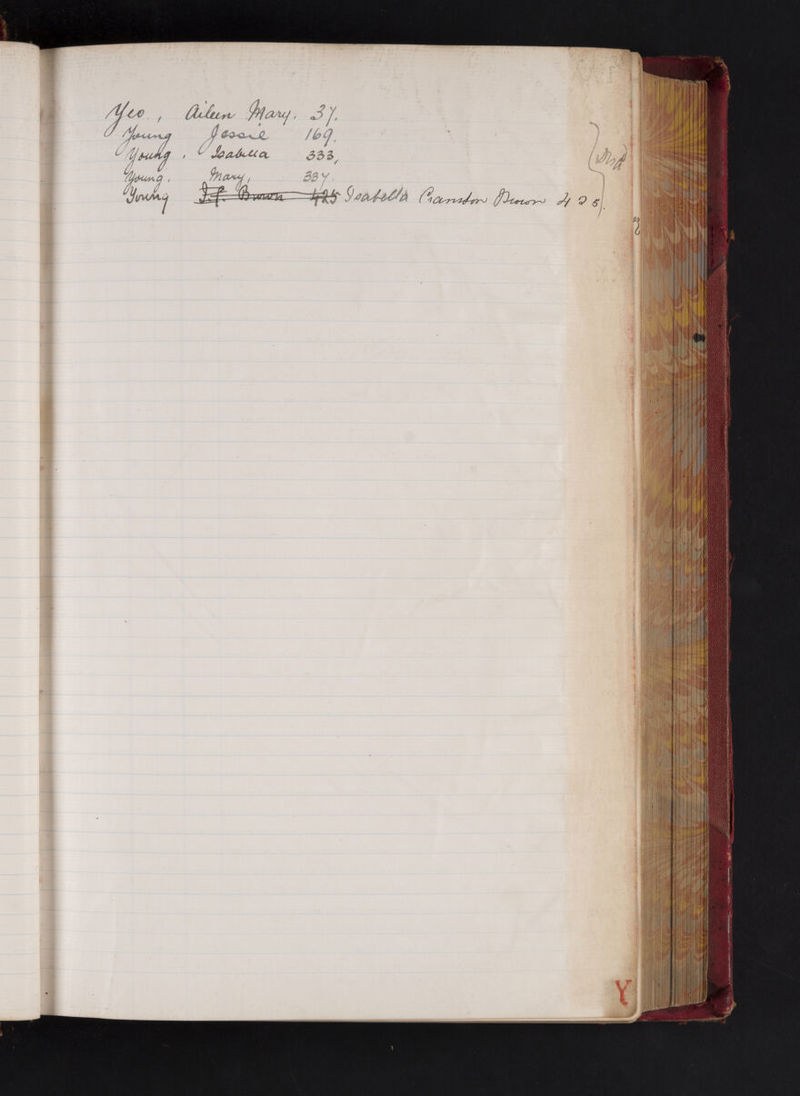 Yeo, Aileen Mary. 37.
Young Jessie 169.
Young. Isabella 333,
Young. Mary, 337.
Young I.C. Brown 425 Isabella Cranston Brown 425.
Y